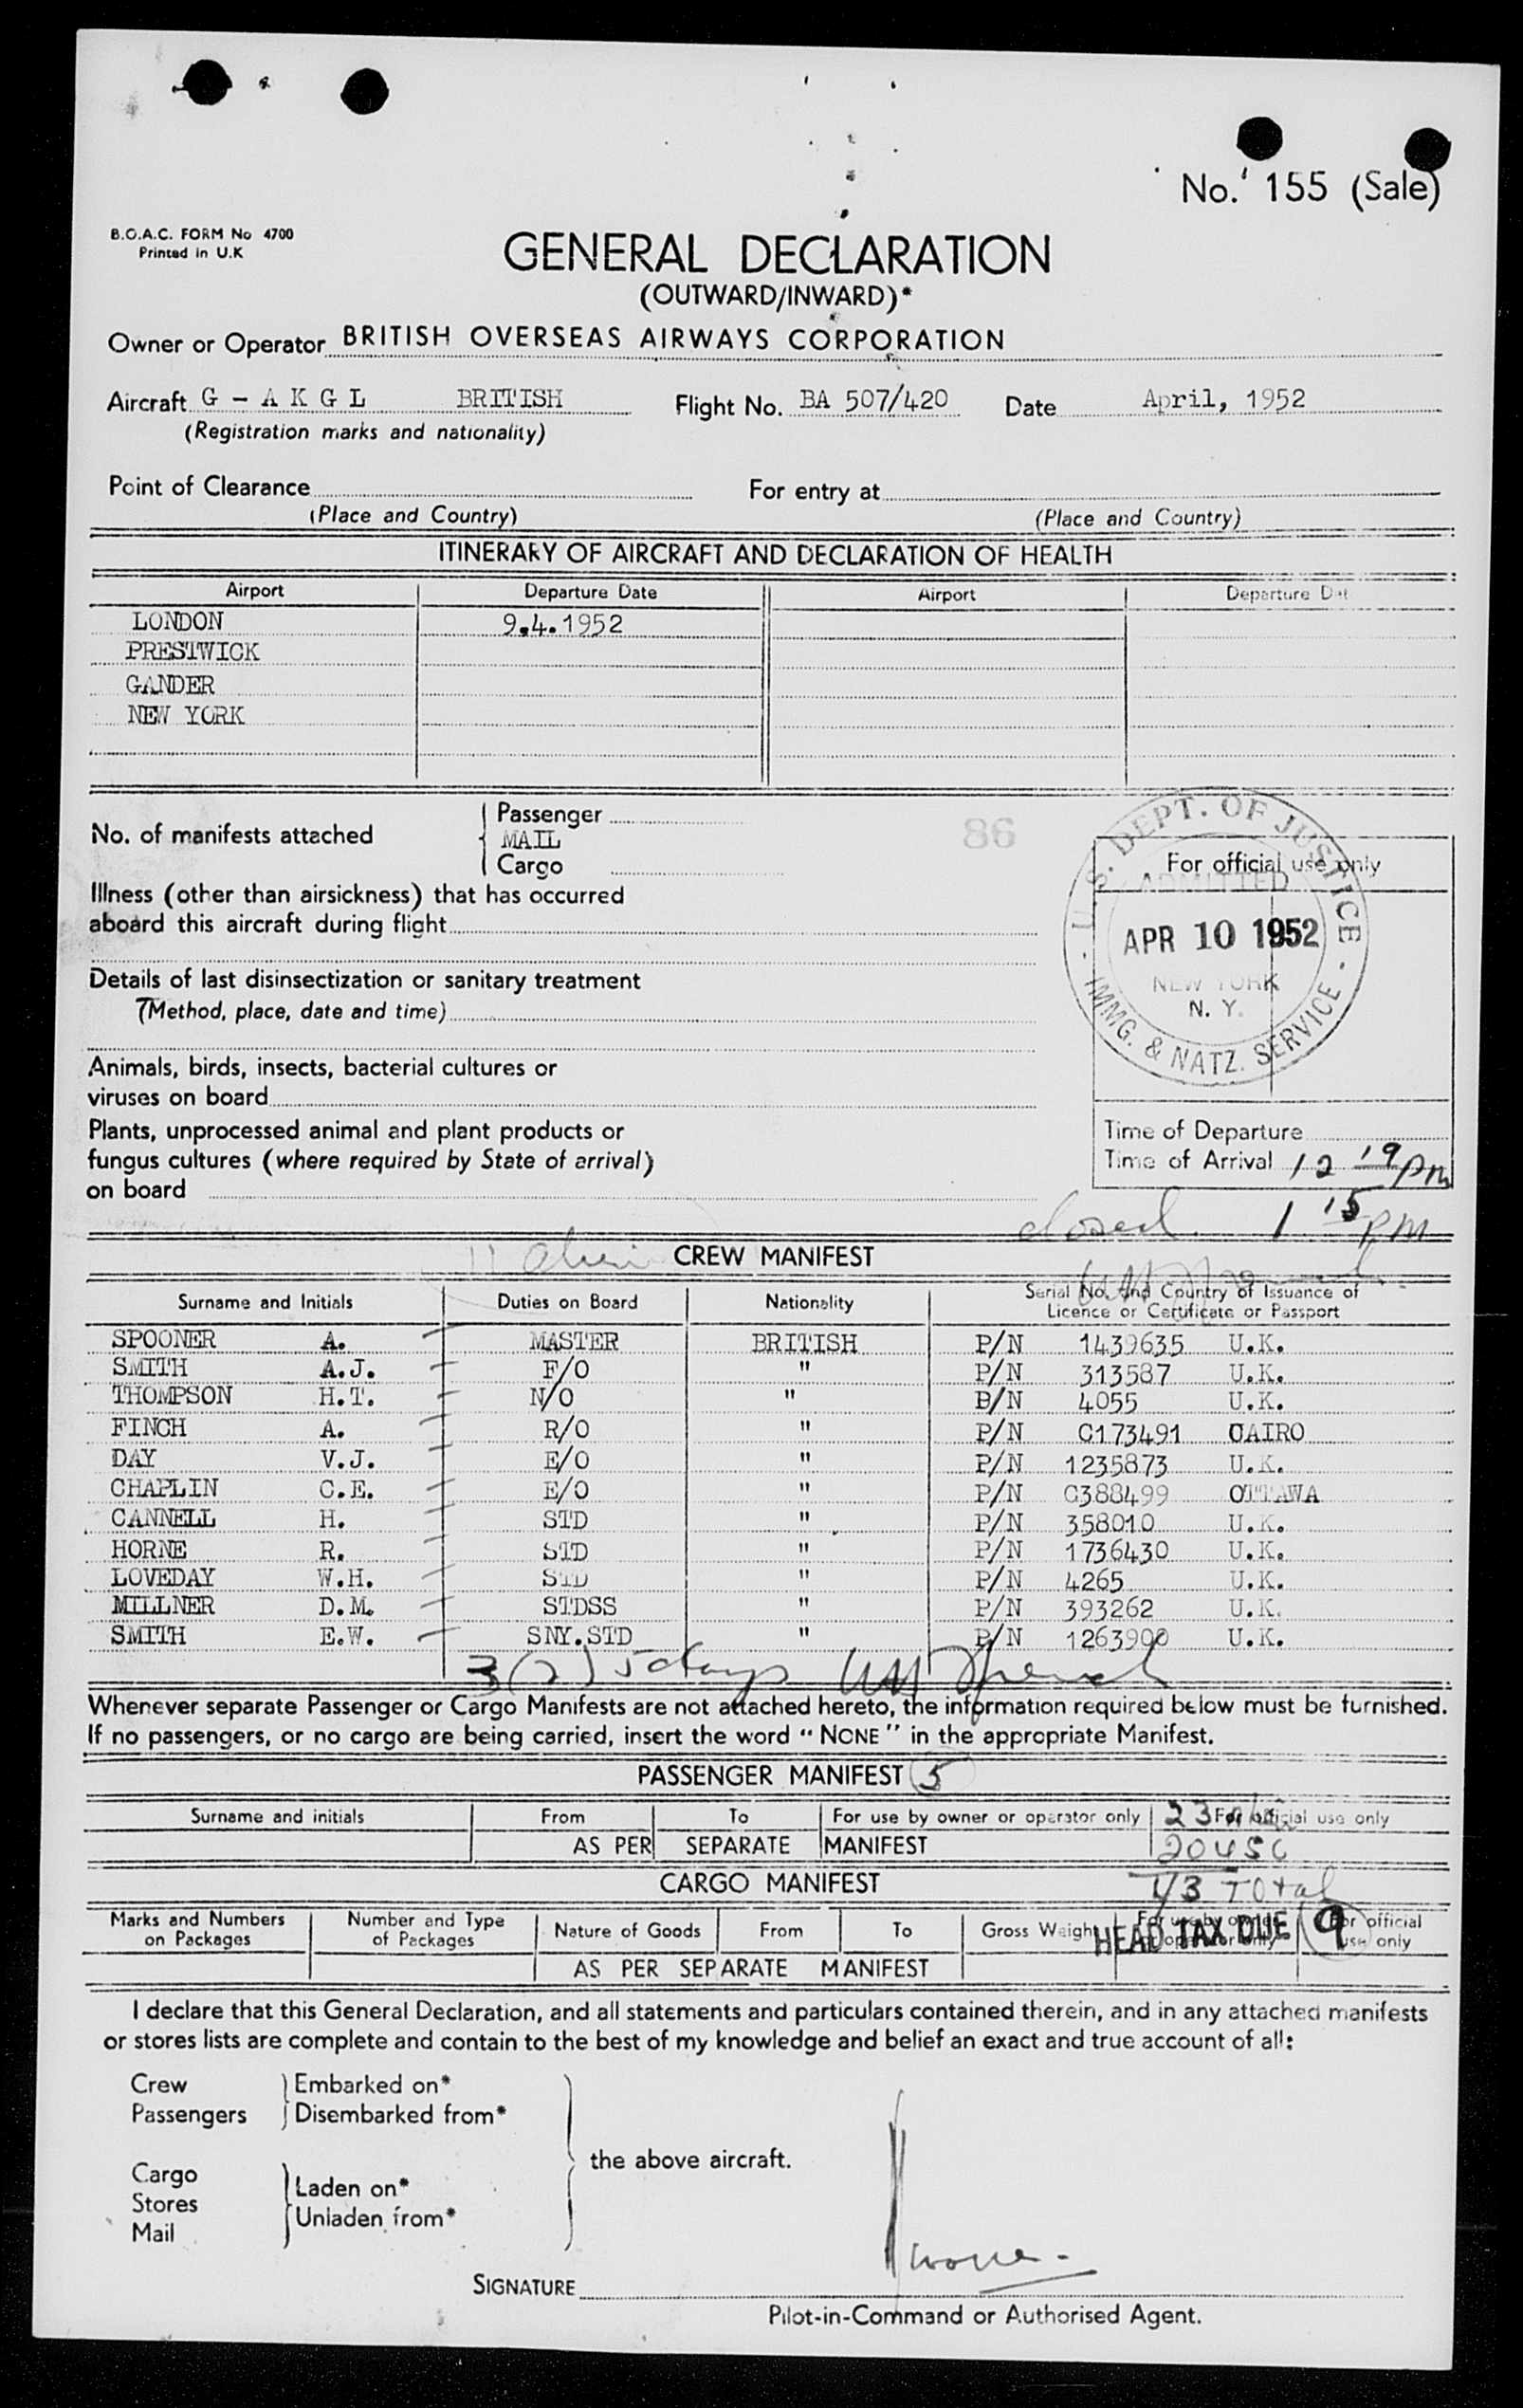 No. 155 (Sale)
B.O.A.C. FORM No 4700
Printed in U.K
GENERAL DECLARATION
(OUTWARD/INWARD)*
Owner or Operator BRITISH OVERSEAS AIRWAYS CORPORATION
Aircraft G - A K G L BRITISH Flight No. BA 507/420 Date April, 1952
(Registration marks and nationality)
Point of Clearance For entry at
(Place and Country) (Place and Country)
ITINERARY OF AIRCRAFT AND DECLARATION OF HEALTH
Airport Departure Date Airport Departure Dat
LONDON 9.4.1952
PRESTWICK
GANDER
NEW YORK
No. of manifests attached
Passenger
MAIL
Cargo
86
U.S. DEPT. OF JUSTICE - IMMG. & NATZ. SERVICE -
For official use only
ADMITTED
APR 10 1952
NEW YORK
N. Y.
Illness (other than airsickness) that has occurred
aboard this aircraft during flight
Details of last disinsectization or sanitary treatment
(Method, place, date and time)
Animals, birds, insects, bacterial cultures or
viruses on board
Plants, unprocessed animal and plant products or
fungus cultures (where required by State of arrival)
on board
Time of Departure
Time of Arrival 12 19 pm
closed 1 15 pm
11 CREW MANIFEST
Surname and Initials Duties on Board Nationality Serial No. and Country of Issuance of
Licence or Certificate or Passport
SPOONER A. MASTER BRITISH P/N 1439635 U.K.
SMITH A.J. F/O " P/N 313587 U.K.
THOMPSON H.T. N/O " B/N 4055 U.K.
FINCH A. R/O " P/N C173491 CAIRO
DAY V.J. E/O " P/N 1235873 U.K.
CHAPLIN C.E. E/O " P/N C388499 OTTAWA
CANNELL H. STD " P/N 358010 U.K.
HORNE R. STD " P/N 1736430 U.K.
LOVEDAY W.H. STD " P/N 4265 U.K.
MILLNER D.M. STDSS " P/N 393262 U.K.
SMITH E.W. SNY.STD " P/N 1263900 U.K.
3(2) 5 days
Whenever separate Passenger or Cargo Manifests are not attached hereto, the information required below must be furnished.
If no passengers, or no cargo are being carried, insert the word "NONE" in the appropriate Manifest.
PASSENGER MANIFEST 5
Surname and initials From To For use by owner or operator only For official use only
23
AS PER SEPARATE MANIFEST
20 USC
CARGO MANIFEST
43 Total
Marks and Numbers on Packages Number and Type of Packages Nature of Goods From To Gross Weight For use by owner or operator only For official use only
HEAD TAX DUE 9
AS PER SEPARATE MANIFEST
I declare that this General Declaration, and all statements and particulars contained therein, and in any attached manifests
or stores lists are complete and contain to the best of my knowledge and belief an exact and true account of all:
Crew Embarked on*
Passengers Disembarked from*
the above aircraft.
Cargo
Stores
Mail
Laden on*
Unladen from*
SIGNATURE
Pilot-in-Command or Authorised Agent.